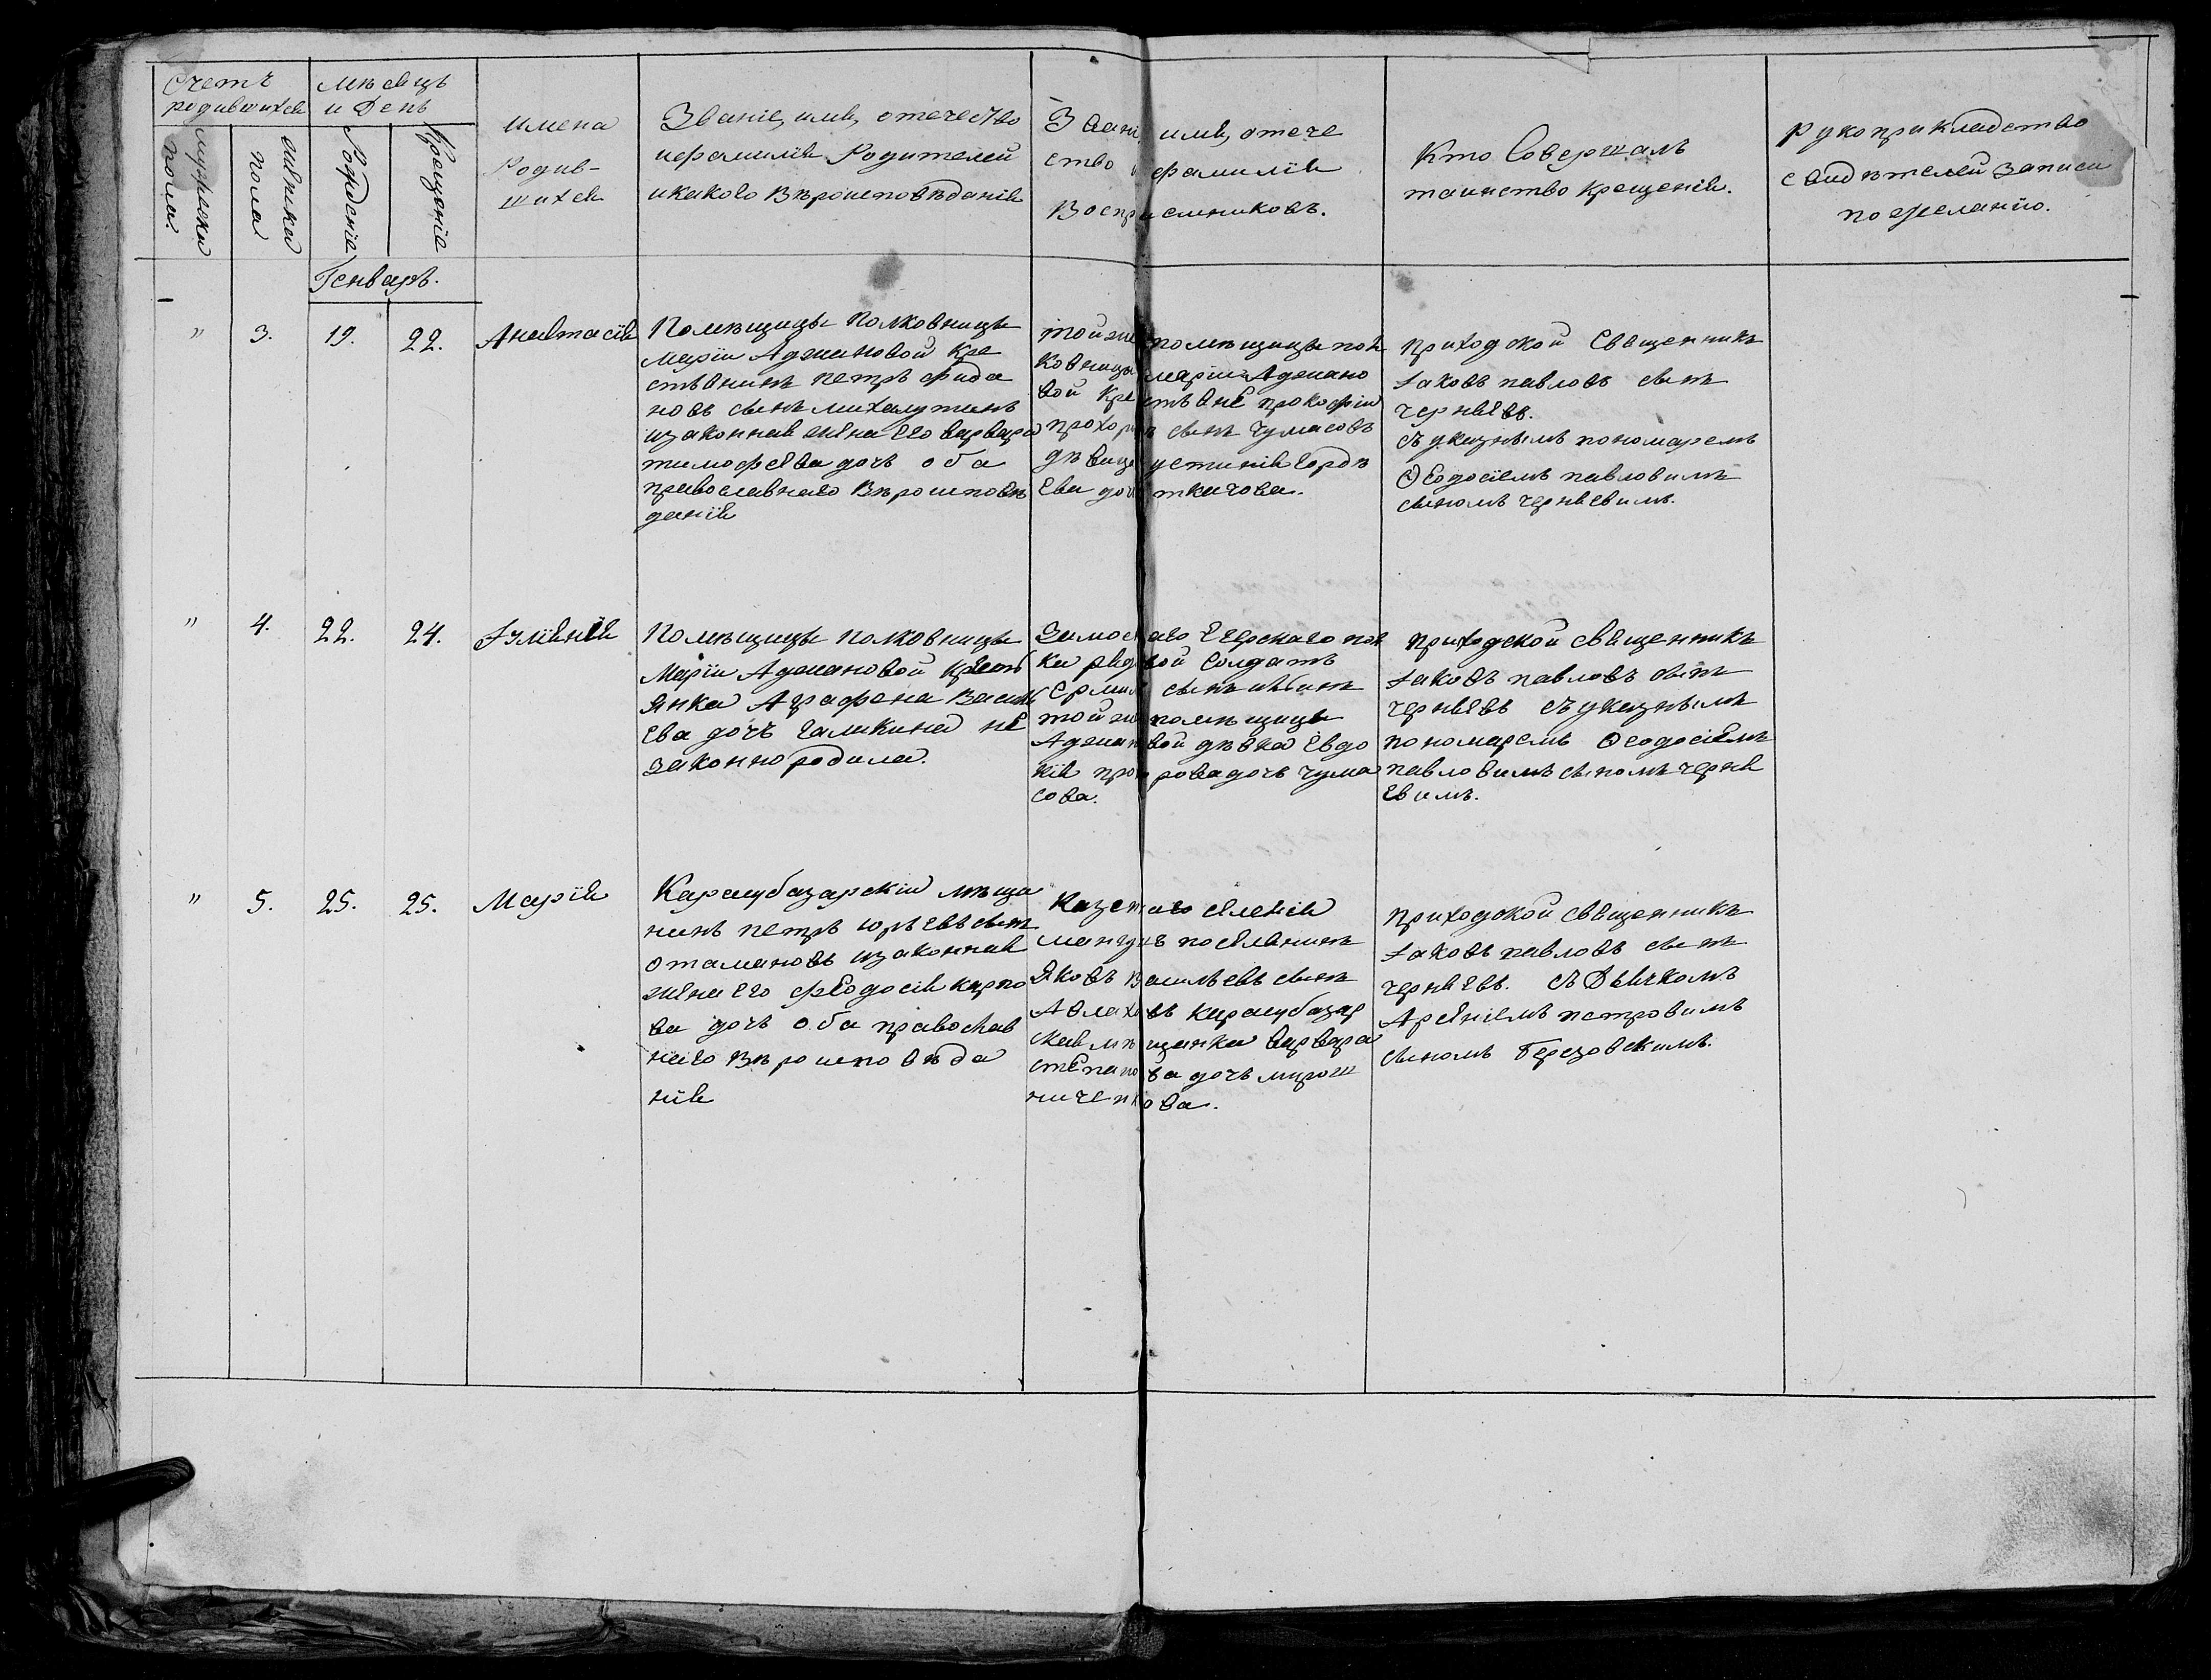 Счетъ родившихся
мѣсяцъ и День
мужеска пола.
женска пола
Рожденіе
Крещеніе
имена
Родив-
шихся
Званіе, имя, отечество
ифамилія Родителей
икакого Вѣроисповѣданія
Звані имя, отече
ство и фамилія
Воспріемниковъ.
Кто Совершалъ
таинство крещенія.
рукоприкладство
свидѣтелей записи
по желанію.
Генварь.
" 3. 19. 22. Анастасія
Помѣщицы Полковницы
маріи Аджановой кре
стьянинъ петръ
новъ сынъ
изаконная жена его варвара
тимофѣева дочъ оба
православнаго Вѣроисповѣ
данія
той же помѣщицы пол
ковницы маріи Аджано
вой крестьяне прокофій
прохоровъ сынъ Чумасовъ
дѣвица устинія
ева дочь ткачова.
приходской Священникъ
Іаковъ павловъ сынъ
чернѣевъ.
съ указнымъ пономаремъ
Ѳеодосіемъ павловимъ
сыномъ чернѣевимъ.
" 4. 22. 24. Іуліянія
Помѣщицы полковницы
Маріи Аджановой крестъ
янка Аграфена Василь
ева дочъ галикина не
законно родила.
Замоскаго Егерскаго пол
ка рядовой Солдатъ
сынъ
той же помѣщицы
Аджановой дѣвка Евдо
кія прохорова дочь чума
сова.
приходской священникъ
Іаковъ павловъ сынъ
чернѣевъ съ указнымъ
пономаремъ Ѳеодосіемъ
павловимъ сыномъ чернѣ
евимъ.
" 5. 25. 25. Марія
Карасубазарскій мѣща
нинъ петръ юрьевъ сынъ
отамановъ изаконная
жена его феодосія карпо
ва дочъ оба православ
наго Вѣроисповѣда
нія
Казеннаго селенія
мангушъ поселянинъ
Яковъ Васильевъ сынъ
Авлаховъ карасубазар
ская мѣщанка варвара
степанова дочъ мирош
ниченкова.
приходской священникъ
Іаковъ павловъ сынъ
чернѣевъ. съ Дьячкомъ
Арсеніемъ петровимъ
сыномъ Березовскимъ.